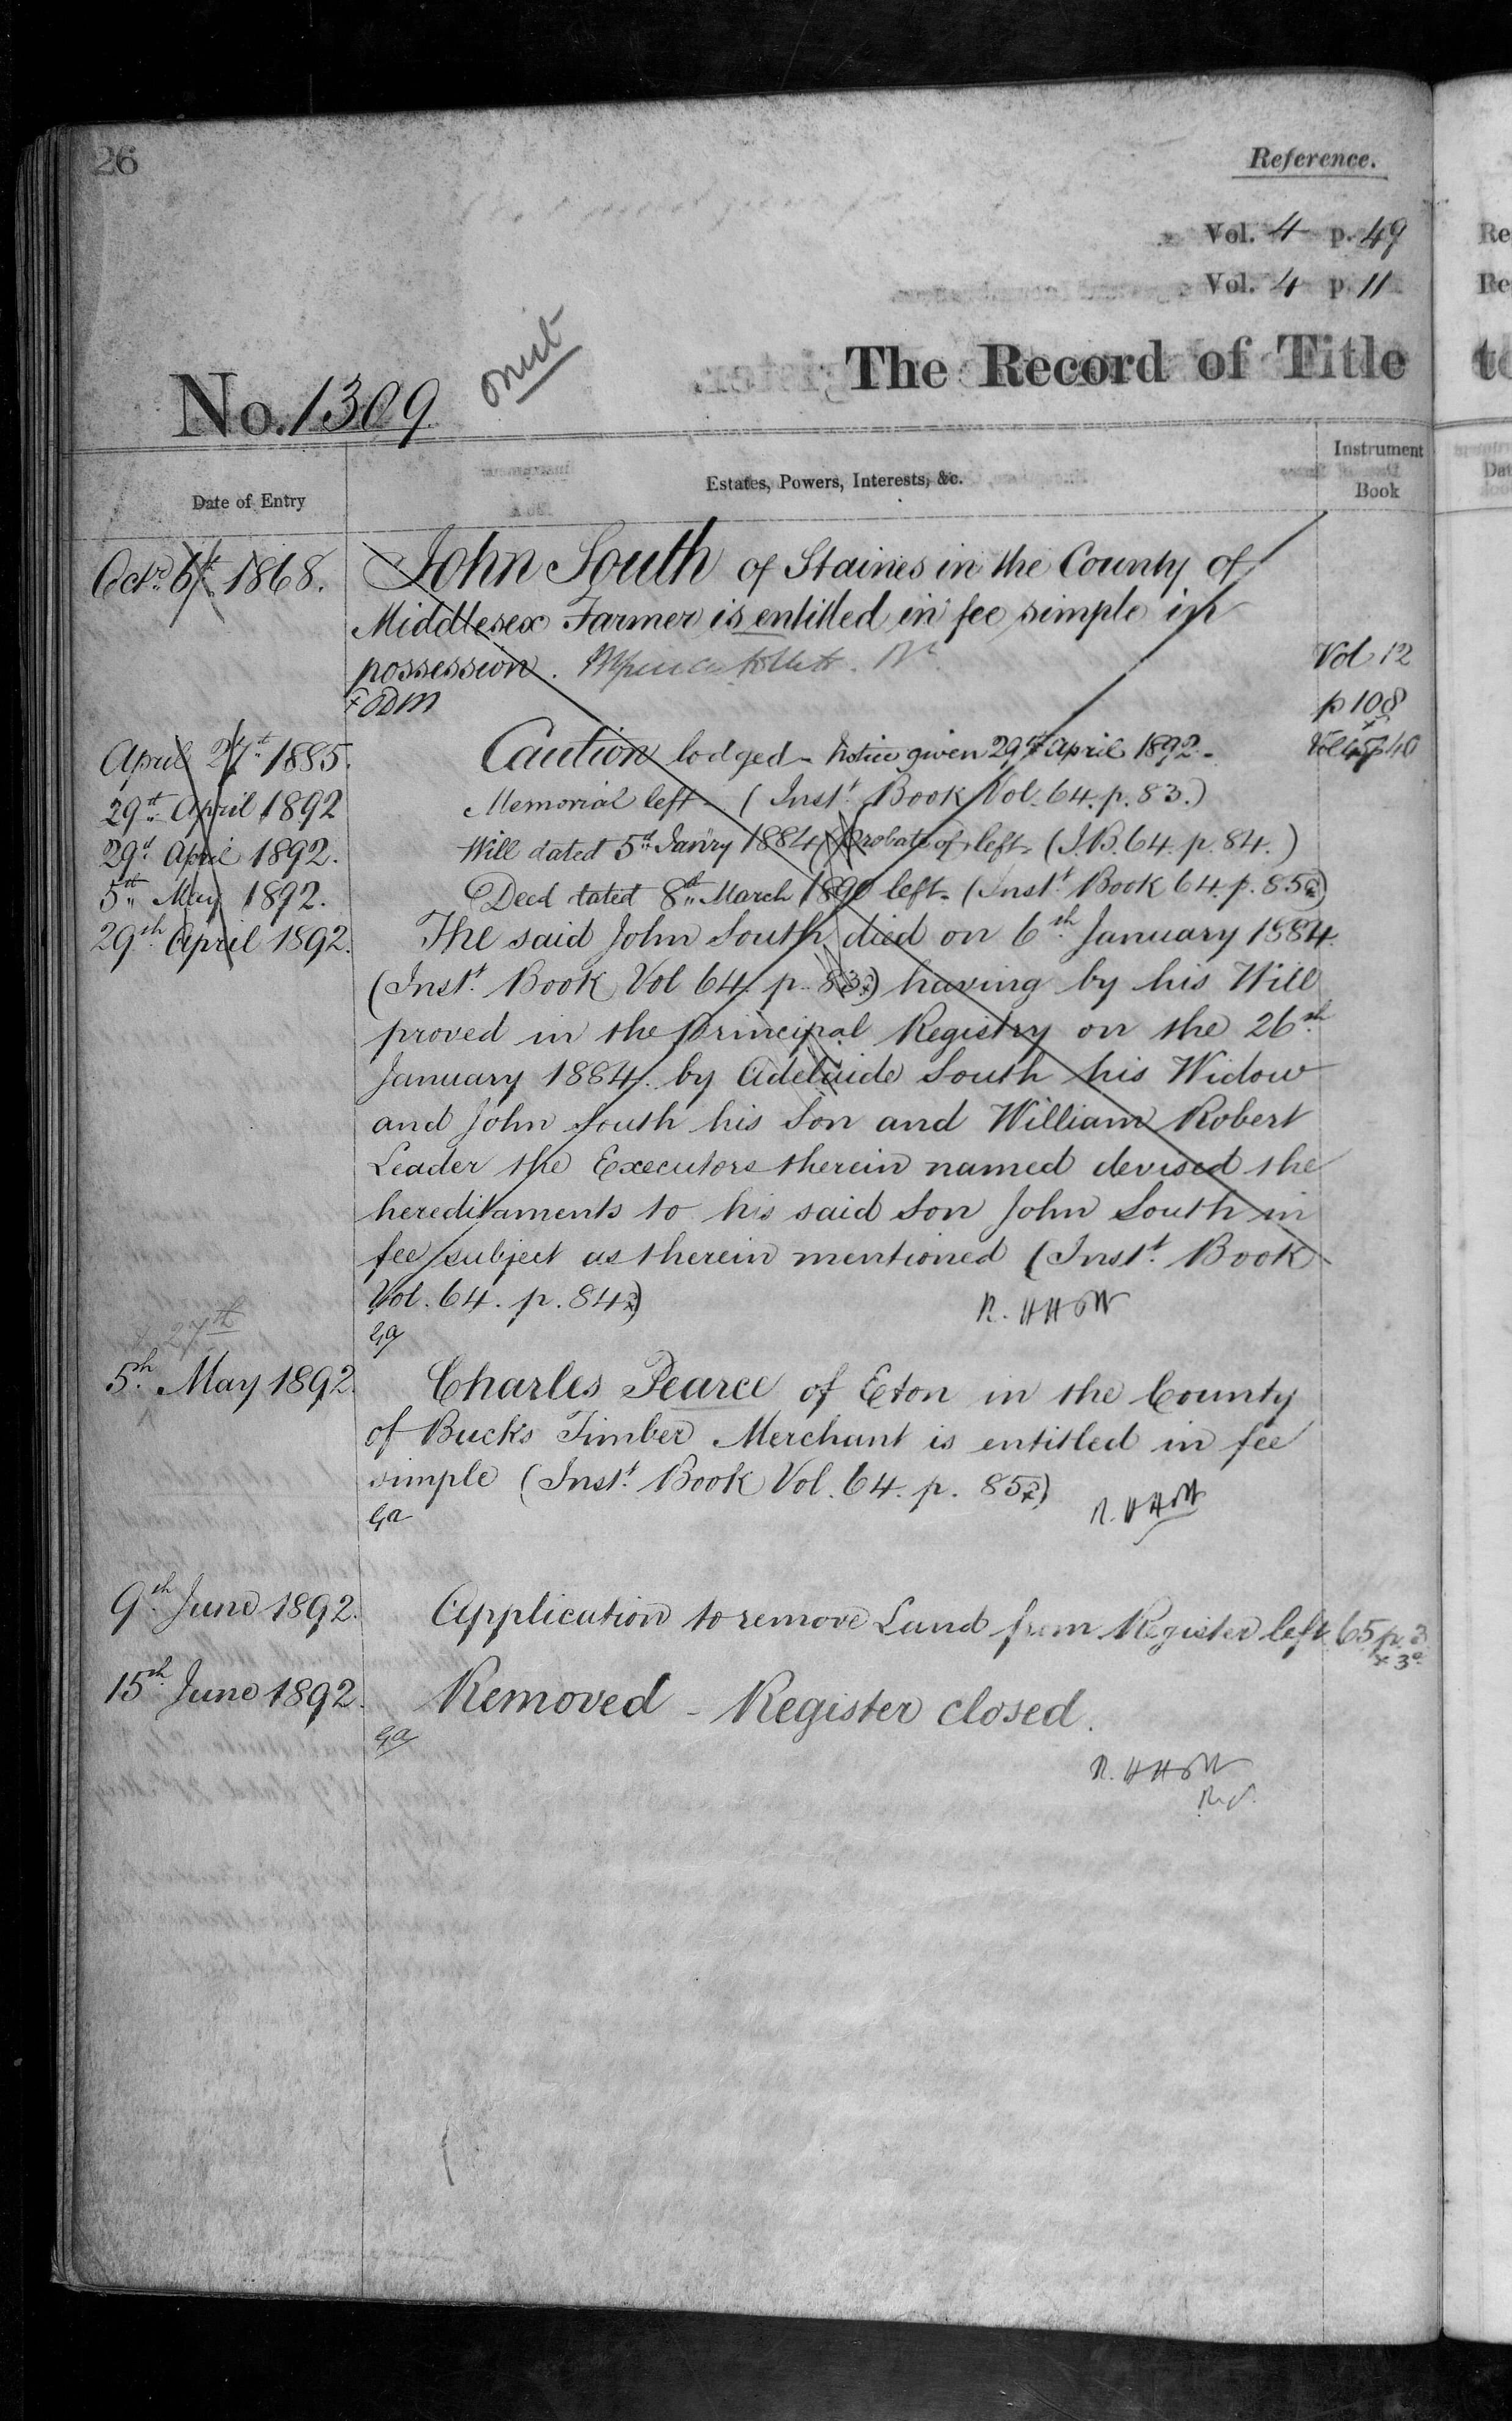 26
Reference.
Vol. 4 p. 49
Vol. 4 p. 11
omit
The Record of Title
No. 1309.
Date of Entry
Estates, Powers, Interests, &c.
Instrument Book
Octr. 6th. 1868. John South of Staines in the County of
Middlesex Farmer is entitled in fee simple in
possession. Vol 12
p 108
April 27th. 1885. Caution lodged - Notice given 29th April 1892. -
29th. April 1892 Memorial left - (Instt. Book Vol. 64. p. 83.)
29th. April 1892. Will dated 5th. Janry 1884 (Probate of) left. (I.B. 64. p. 84.)
5th. May 1892. Deed dated 8th. March 1890 left - (Instt. Book 64. p. 85)
29th. April 1892. The said John South died on 6th. January 1884.
(Instt. Book Vol 64. p. 83) having by his Will
proved in the Principal Registry on the 26th.
January 1884. by Adelaide South his Widow
and John South his Son and William Robert
Leader the Executors therein named devised the
hereditaments to his said Son John South in
fee subject as therein mentioned (Instt. Book
Vol. 64. p. 84)
27th
5th. May 1892. Charles Pearce of Eton in the County
of Bucks Timber Merchant is entitled in fee
simple (Instt. Book Vol. 64. p. 85)
9th. June 1892. Application to remove Land from Register left. 65 p. 3
15th. June 1892. Removed - Register closed.